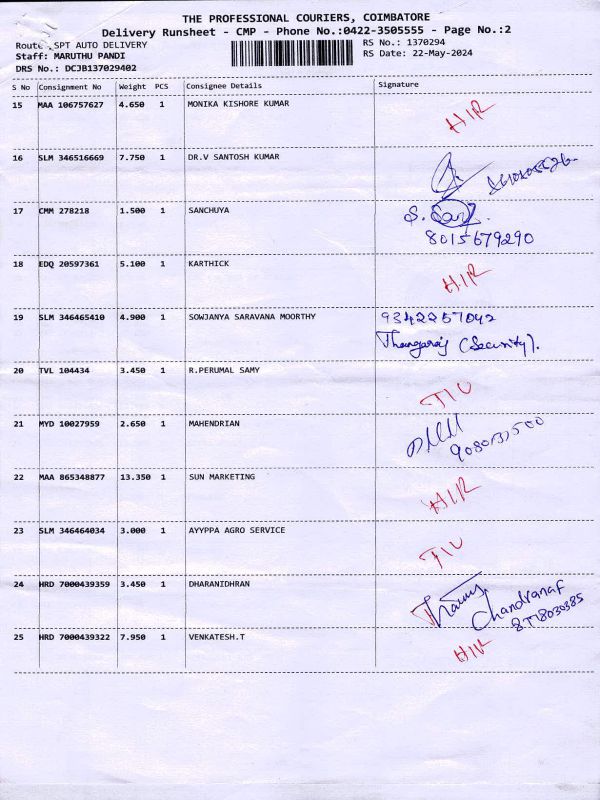 THE PROFESSIONAL COURIERS, COIMBATORE
Delivery Runsheet - CMP - Phone No.:0422-3505555 - Page No.:2
Route: SPT AUTO DELIVERY
RS No.: 1370294
Staff: MARUTHU PANDI
RS Date: 22-May-2024
DRS No.: DCJB137029402
S No Consignment No Weight PCS Consignee Details Signature
15 MAA 106757627 4.650 1 MONIKA KISHORE KUMAR HIR
16 SLM 346516669 7.750 1 DR.V SANTOSH KUMAR
17 CMM 278218 1.500 1 SANCHUYA S.
8015679290
18 EDQ 20597361 5.100 1 KARTHICK HIR
19 SLM 346465410 4.900 1 SOWJANYA SARAVANA MOORTHY 9342257042
Thangaraj (Security).
20 TVL 104434 3.450 1 R.PERUMAL SAMY TIU
21 MYD 10027959 2.650 1 MAHENDRIAN
22 MAA 865348877 13.350 1 SUN MARKETING HIR
23 SLM 346464034 3.000 1 AYYPPA AGRO SERVICE TIU
24 HRD 7000439359 3.450 1 DHARANIDHRAN
25 HRD 7000439322 7.950 1 VENKATESH.T HIR